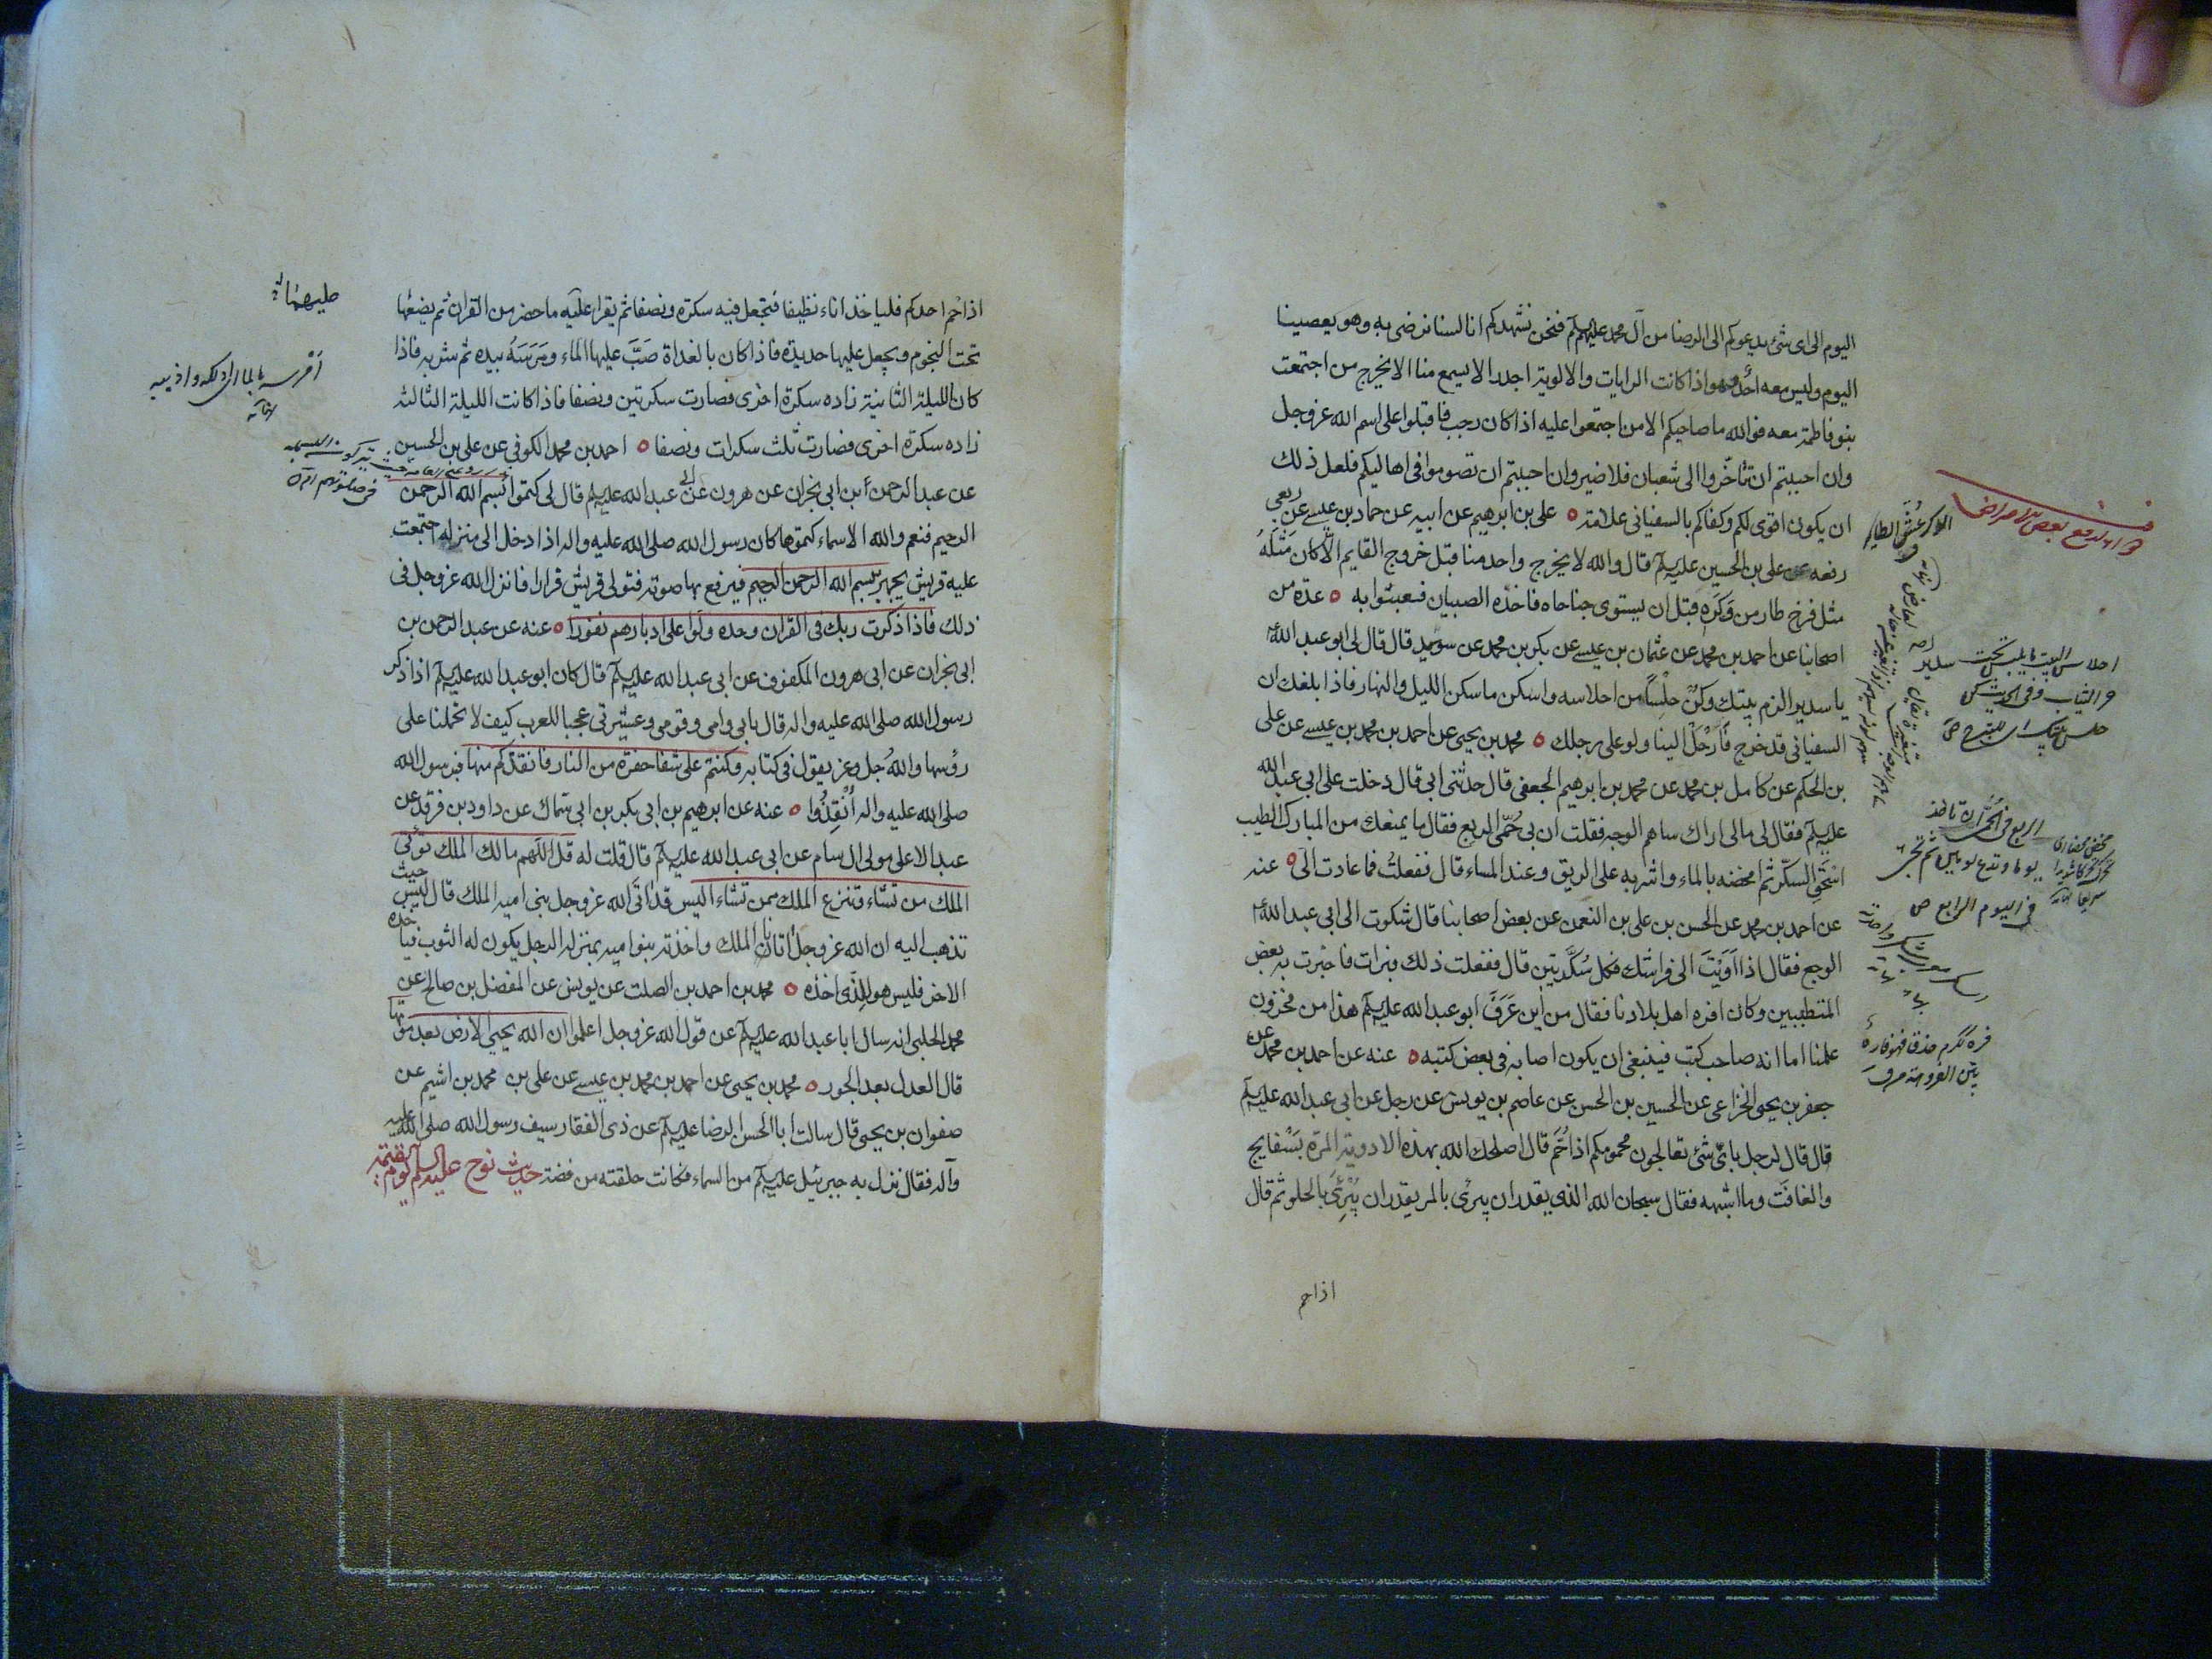 اليوم الى اى شئ يدعوكم الى الرضا من آل محمد عليهم السلم فنحن نشهدكم انا لسنا نرضى به وهو يعصينا
اليوم وليس معه احد وهو اذا كانت الرايات والالوية اجدر الا يسمع منا الا يخرج من اجتمعت
بنو فاطمة معه فوالله ما صاحبكم الا من اجتمعوا عليه اذا كان رجب فاقبلوا على اسم الله عز وجل
وان احببتم ان تتاخروا الى شعبان فلا ضير وان احببتم ان تصوموا فى اهاليكم فلعل ذلك
ان يكون اقوى لكم وكفاكم بالسفيانى علامة ه على بن ابرهيم عن ابيه عن حماد بن عيسى عن ربعى
رفعه عن على بن الحسين عليه السلم قال والله لا يخرج واحد منا قبل خروج القايم الا كان مثله
مثل فرخ طار من وكره قبل ان يستوى جناحاه فاخذه الصبيان فعبثوا به ه عدة من
اصحابنا عن احمد بن محمد عن عثمان بن عيسى عن بكر بن محمد عن سدير قال قال لى ابو عبد الله
يا سدير الزم بيتك وكن حلسا من احلاسه واسكن ما سكن الليل والنهار فاذا بلغك ان
السفيانى قد خرج فارحل الينا ولو على رجلك ه محمد بن يحيى عن احمد بن محمد بن عيسى عن على
بن الحكم عن كامل بن محمد عن محمد بن ابرهيم الجعفى قال حدثنى ابى قال دخلت على ابى عبد الله
عليه السلم فقال لى مالى اراك ساهم الوجه فقلت ان بى حمى الربع فقال ما يمنعك من المبارك الطيب
اسحق السكر ثم امخضه بالماء واشربه على الريق وعند المساء قال ففعلت فما عادت الى ه عنه
عن احمد بن محمد عن الحسن بن على بن النعمن عن بعض اصحابنا قال شكوت الى ابى عبد الله
الوجع فقال اذا اويت الى فراشك فكل سكرتين قال ففعلت ذلك فبرات فاخبرت به بعض
المتطببين وكان افره اهل بلادنا فقال من اين عرف ابو عبد الله عليه السلم هذا من مخزون
علمنا اما انه صاحب كتب فينبغى ان يكون اصابه فى بعض كتبه ه عنه عن احمد بن محمد عن
جعفر بن يحيى الخزاعى عن الحسين بن الحسن عن عاصم بن يونس عن رجل عن ابى عبد الله عليه السلم
قال قال لرجل باى شئ تعالجون محمومكم اذا حم قال اصلحك الله بهذه الادوية المرة بسفايج
والغافت وما اشبهه فقال سبحان الله الذى يقدر ان يبرئ بالمر يقدر ان يبرئ بالحلو ثم قال
اذا حم
الوكر عش الطاير
احلاس البيت ما يلبس تحت
حر الثياب وفى الحديث كن
حلس بيتك اى لا تبرح ص
الربع فى الحمى ان تاخذ
يوما وتدع يومين ثم تجئ
فى اليوم الرابع ص
اذا حم احدكم فليأخذ اناء نظيفا فيجعل فيه سكرة ونصفا ثم يقرا عليه ما حضر من القران ثم يضعها
تحت النجوم ويجعل عليها حديدة فاذا كان بالغداة صب عليها الماء ومرسه بيده ثم شربه فاذا
كان الليلة الثانية زاده سكرة اخرى فصارت سكرتين ونصفا فاذا كانت الليلة الثالثة
زاده سكرة اخرى فصارت ثلث سكرات ونصفا ه احمد بن محمد الكوفى عن على بن الحسين
عن عبد الرحمن بن ابى نجران عن هرون عن ابى عبد الله عليه السلم قال لى كتموا بسم الله الرحمن
الرحيم فنعم والله الاسماء كتموها كان رسول الله صلى الله عليه واله اذا دخل الى منزله اجتمعت
عليه قريش يجهر ببسم الله الرحمن الرحيم فيرفع بها صوته فتولى قريش فرارا فانزل الله عز وجل فى
ذلك فاذا ذكرت ربك فى القران وحده ولوا على ادبارهم نفورا ه عنه عن عبد الرحمن بن
ابى نجران عن ابى هرون المكفوف عن ابى عبد الله عليه السلم قال كان ابو عبد الله عليه السلم اذا ذكر
رسول الله صلى الله عليه واله قال بابى وامى وقومى وعشيرتى عجبا للعرب كيف لا تحملنا على
رؤسها والله جل وعز يقول فى كتابه وكنتم على شفا حفرة من النار فانقذكم منها فبرسول الله
صلى الله عليه واله انقذوا ه عنه عن ابرهيم بن ابى بكر بن ابى سماك عن داود بن فرقد عن
عبد الاعلى مولى ال سام عن ابى عبد الله عليه السلم قال قلت له قل اللهم مالك الملك تؤتى
الملك من تشاء وتنزع الملك ممن تشاء اليس قد اتى الله عز وجل بنى امية الملك قال ليس حيث
تذهب اليه ان الله عز وجل اتانا الملك واخذته بنو امية بمنزلة الرجل يكون له الثوب فياخذه
الاخر فليس هو للذى اخذه ه محمد بن احمد بن الصلت عن يونس عن المفضل بن صالح عن
محمد الحلبى انه سال ابا عبد الله عليه السلم عن قول الله عز وجل اعلموا ان الله يحيى الارض بعد موتها
قال العدل بعد الجور ه محمد بن يحيى عن احمد بن محمد بن عيسى عن على بن محمد بن اشيم عن
صفوان بن يحيى قال سالت ابا الحسن الرضا عليه السلم عن ذى الفقار سيف رسول الله صلى الله عليه
وآله فقال نزل به جبرئيل عليه السلم من السماء فكانت حلقته من فضة حديث نوح عليه السلم يوم القيمة